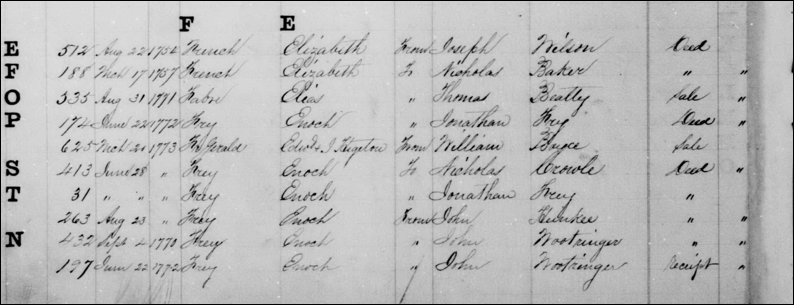 F E
E 512 Aug 22 1754 French Elizabeth From Joseph Wilson Deed
F 188 Mch 17 1757 French Elizabeth To Nicholas Baker " "
O 535 Aug 31 1771 Elias " Thomas Beatty Sale "
P 174 June 22 1772 Frey Enoch " Jonathan Frey Deed "
625 Mch 21 1773 Edwd & J From William Sale
S 413 June 28 " Frey Enoch To Nicholas Crowle Deed "
T 31 " " " Frey Enoch " Jonathan Frey " "
263 Aug 23 " Frey Enoch From John " "
N 432 Sept 4 1770 Frey Enoch " John Wootringer " "
197 June 22 1772 Frey Enoch " John Wootringer Receipt "